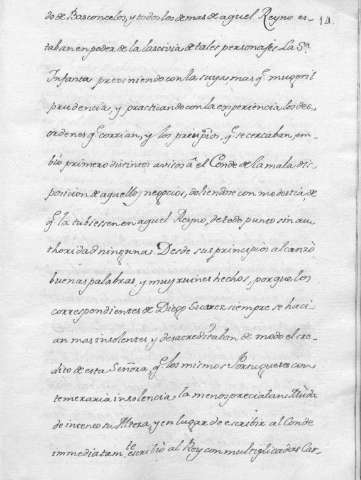 14
do de Basconcelos, y todos los demas de aquel Reyno es-
taban en poder de la lascivia de tales personajes. La Sra
Infanta previniendo con la suya mas q. mugeril
prudencia, y practicando con la experiencia los des-
ordenes q. corrian, y los precipicios, q. se cercaban, em-
bio primero distintos avisos a el Conde de la mala dis-
posicion de aquellos negocios, doliendose con modestia, de
q. la tubiessen en aquel Reyno, de todo punto sin au-
thoridad ninguna. Desde sus principios alcanzó
buenas palabras, y muy ruines hechos, porque los
correspondientes de Diego Suarez siempre se haci-
an mas insolentes y desacreditaban de modo el cre-
dito de esta Señora, q. los mismos Portugueses con
temeraria insolencia, la menospreciaban. Muda
de intento su Alteza, y en lugar de escribir al Conde
immediatamte escribió al Rey con multiplicadas Car-